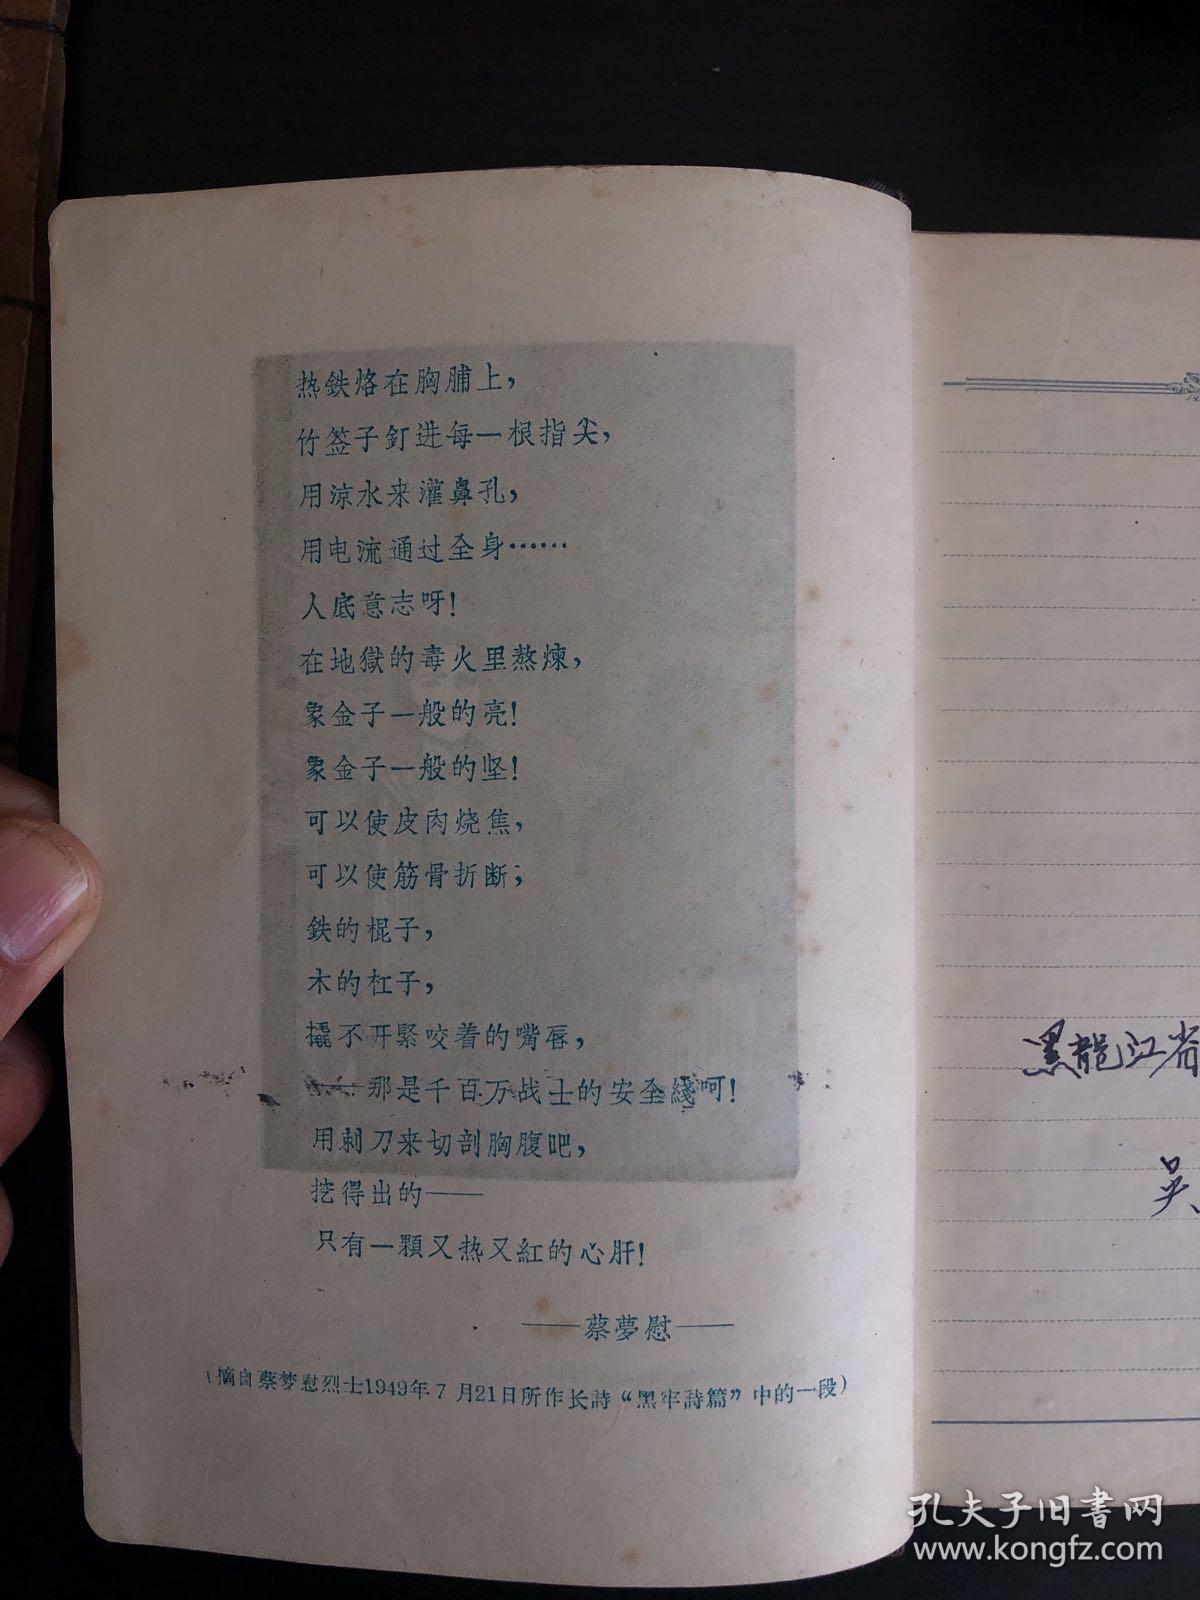 热鉄烙在胸脯上，
竹签子釘进每一根指尖，
用涼水来灌鼻孔，
用电流通过全身……
人底意志呀！
在地獄的毒火里熬煉，
象金子一般的亮！
象金子一般的坚！
可以使皮肉烧焦，
可以使筋骨折断；
鉄的棍子，
木的杠子，
撬不开緊咬着的嘴唇，
——那是千百万战士的安全綫呵！
用刺刀来切剖胸腹吧，
挖得出的——
只有一顆又热又紅的心肝！
——蔡夢慰——
（摘自蔡梦慰烈士1949年7月21日所作长詩“黑牢詩篇”中的一段）
黑龍江省
吴
孔夫子旧书网
www.kongfz.com